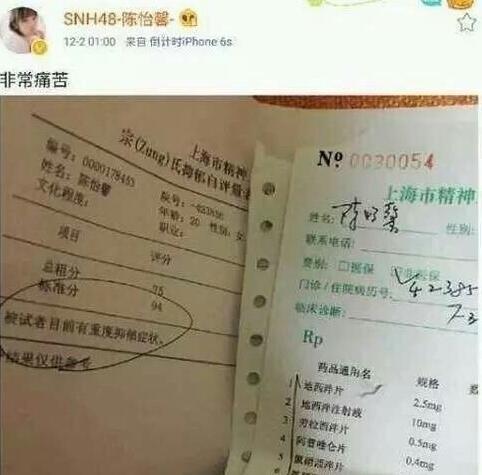 SNH48-陈怡馨-
12-2 01:00 来自 倒计时iPhone 6s
非常痛苦
上海市精神
宗(Zung)氏抑郁自评量表
编号: 0000178453
姓名: 陈怡馨
年龄: 20 性别: 女
文化程度:
职业:
项目 评分
总粗分 75
标准分 94
被试者目前有重度抑郁症状。
结果仅供参考
№ 0030054
上海市精神
姓名: 陈怡馨 性别:
联系电话:
费别: □医保 非医保
门诊/住院病历号: 42385
临床诊断:
Rp
药品通用名 规格 数
1 地西泮片 2.5mg
2 地西泮注射液 10mg
3 劳拉西泮片 0.5mg
4 阿普唑仑片 0.4mg
5 氯硝西泮片